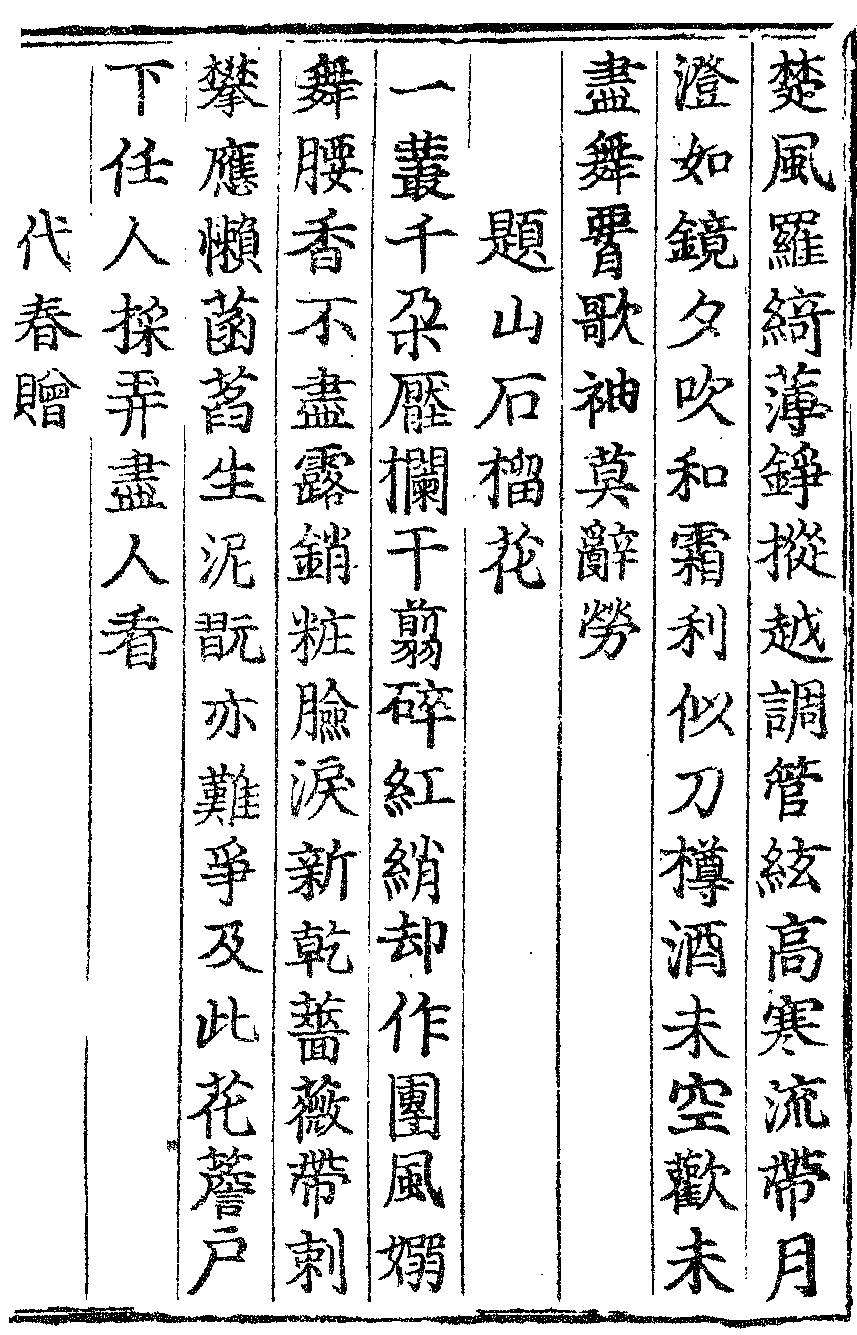 楚風羅綺薄錚摐越調管絃高寒流帶月
澄如鏡夕吹和霜利似刀樽酒未空歡未
盡舞䙅歌袖莫辭勞
題山石榴花
一叢千朶壓欄干翦碎紅綃却作團風嫋
舞腰香不盡露銷粧臉淚新乾薔薇帶刺
攀應懶菡萏生泥翫亦難爭及此花簷戶
下任人採弄盡人看
代春贈